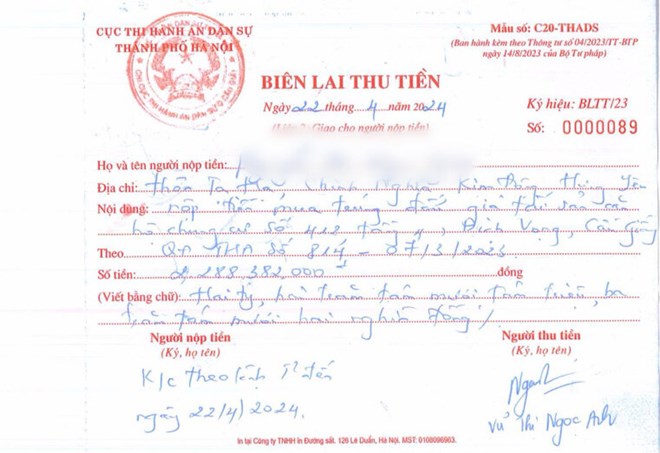 CỤC THI HÀNH ÁN DÂN SỰ
THÀNH PHỐ HÀ NỘI
Mẫu số: C20-THADS
(Ban hành kèm theo Thông tư số 04/2023/TT-BTP
ngày 14/8/2023 của Bộ Tư pháp)
BIÊN LAI THU TIỀN
Ngày 22 tháng 4 năm 2024
Giao cho người nộp tiền)
Ký hiệu: BLTT/23
Số: 0000089
Họ và tên người nộp tiền:
Địa chỉ: Thôn Tạ Chính Nghĩa Kim Động Hưng Yên
Nội dung: nộp tiền mua trúng đấu giá tài sản căn
hộ chung cư số 412 tầng 4, Dịch Vọng, Cầu Giấy
Theo QĐ THA số 814 - 07/3/2023
Số tiền: 2,288,382,000đ đồng
(Viết bằng chữ): Hai tỷ, hai trăm tám mươi tám triệu, ba
trăm tám mươi hai nghìn đồng/
Người nộp tiền
Người thu tiền
(Ký, họ tên)
(Ký, họ tên)
K/c theo lệnh
ngày 22/4/2024.
Vũ Thị Ngọc Anh
In tại Công ty TNHH in Đường sắt. 126 Lê Duẩn, Hà Nội. MST: 0100096963.